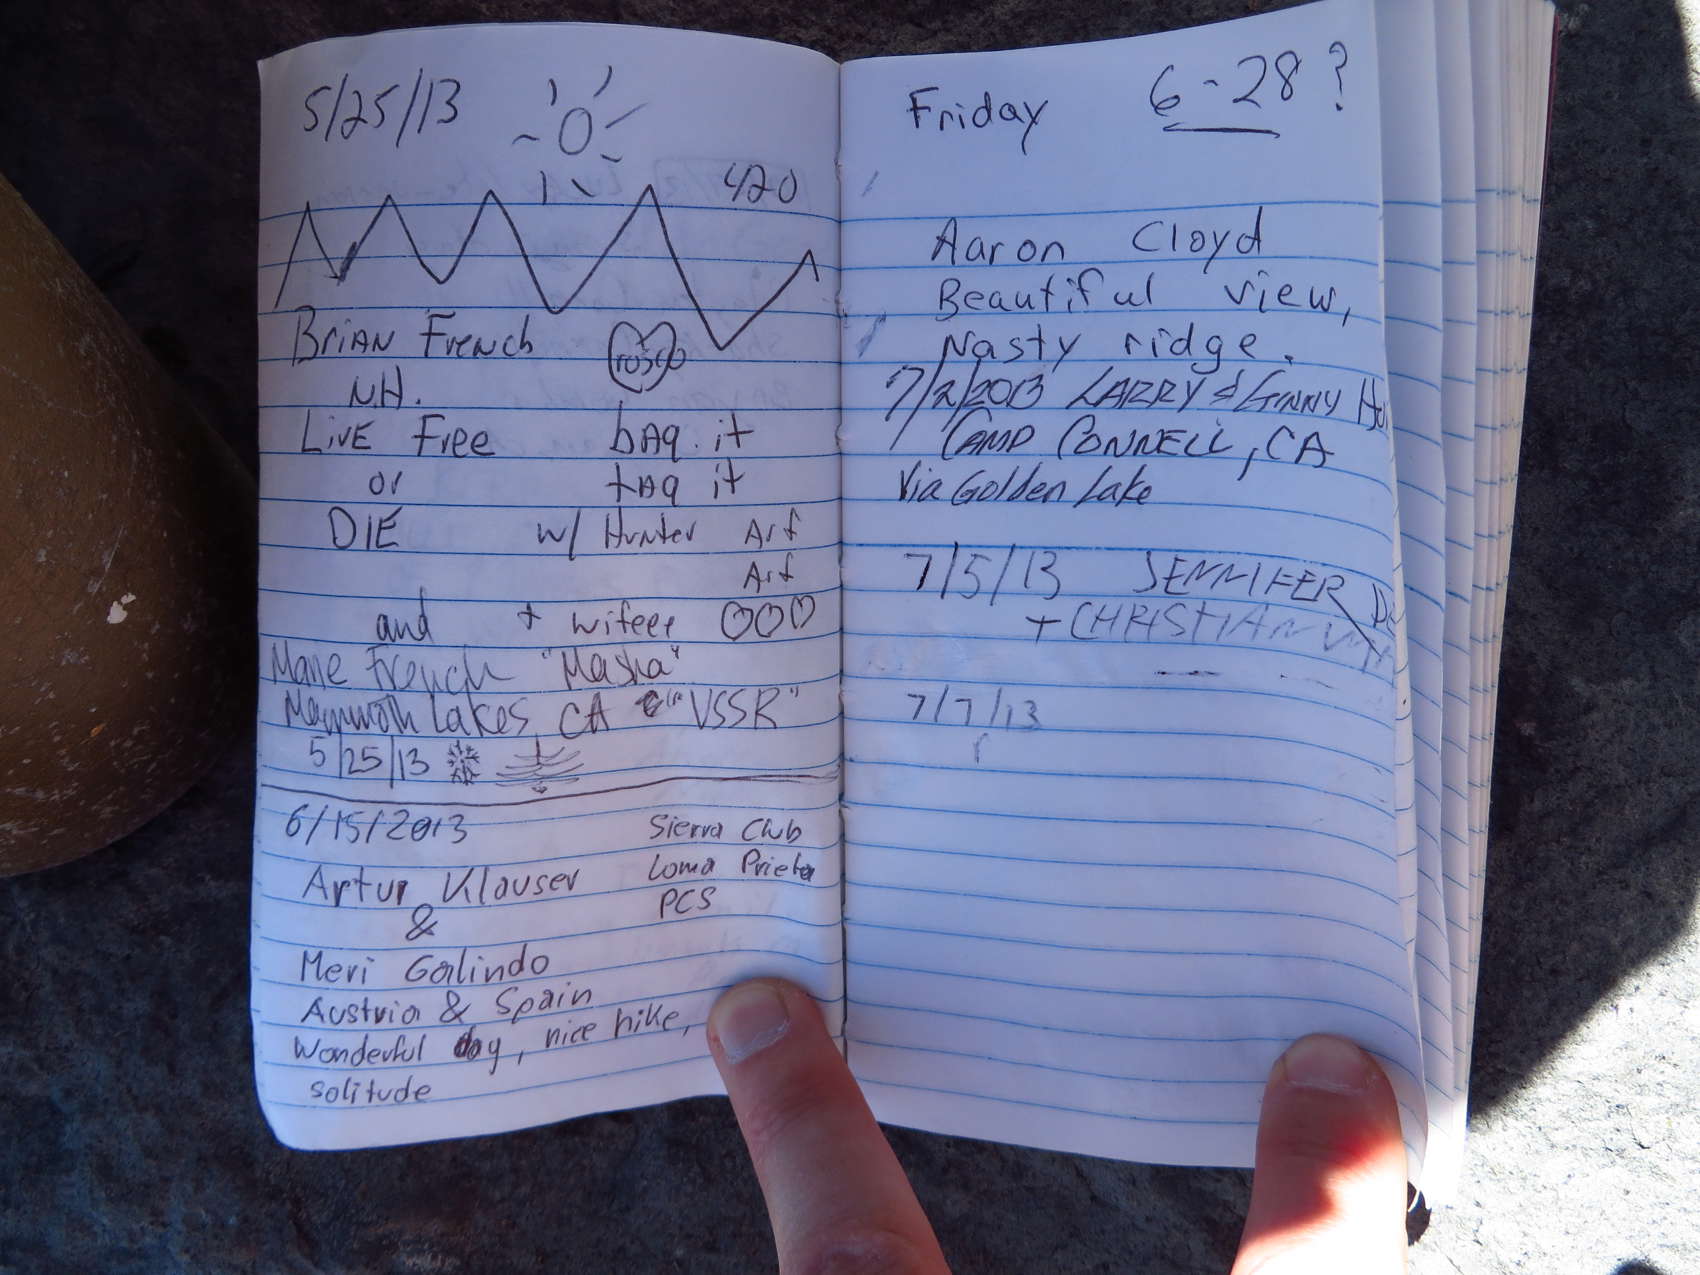 5/25/13
420
Brian French
N.H.
Live Free bag it
or tag it
DIE w/ Hunter Arf
Arf
and + wifeee
French "Masha"
Mammoth Lakes, CA "VSSR"
5/25/13
6/15/2013 Sierra Club
Artur Klauser Loma Prieta
& PCS
Meri Galindo
Austria & Spain
Wonderful day, nice hike,
solitude
Friday 6-28?
Aaron Cloyd
Beautiful view,
Nasty ridge.
7/2/2013 LARRY & GINNY
CAMP CONNELL, CA
Via Golden Lake
7/5/13 JENNIFER
+ CHRISTIAN
7/7/13